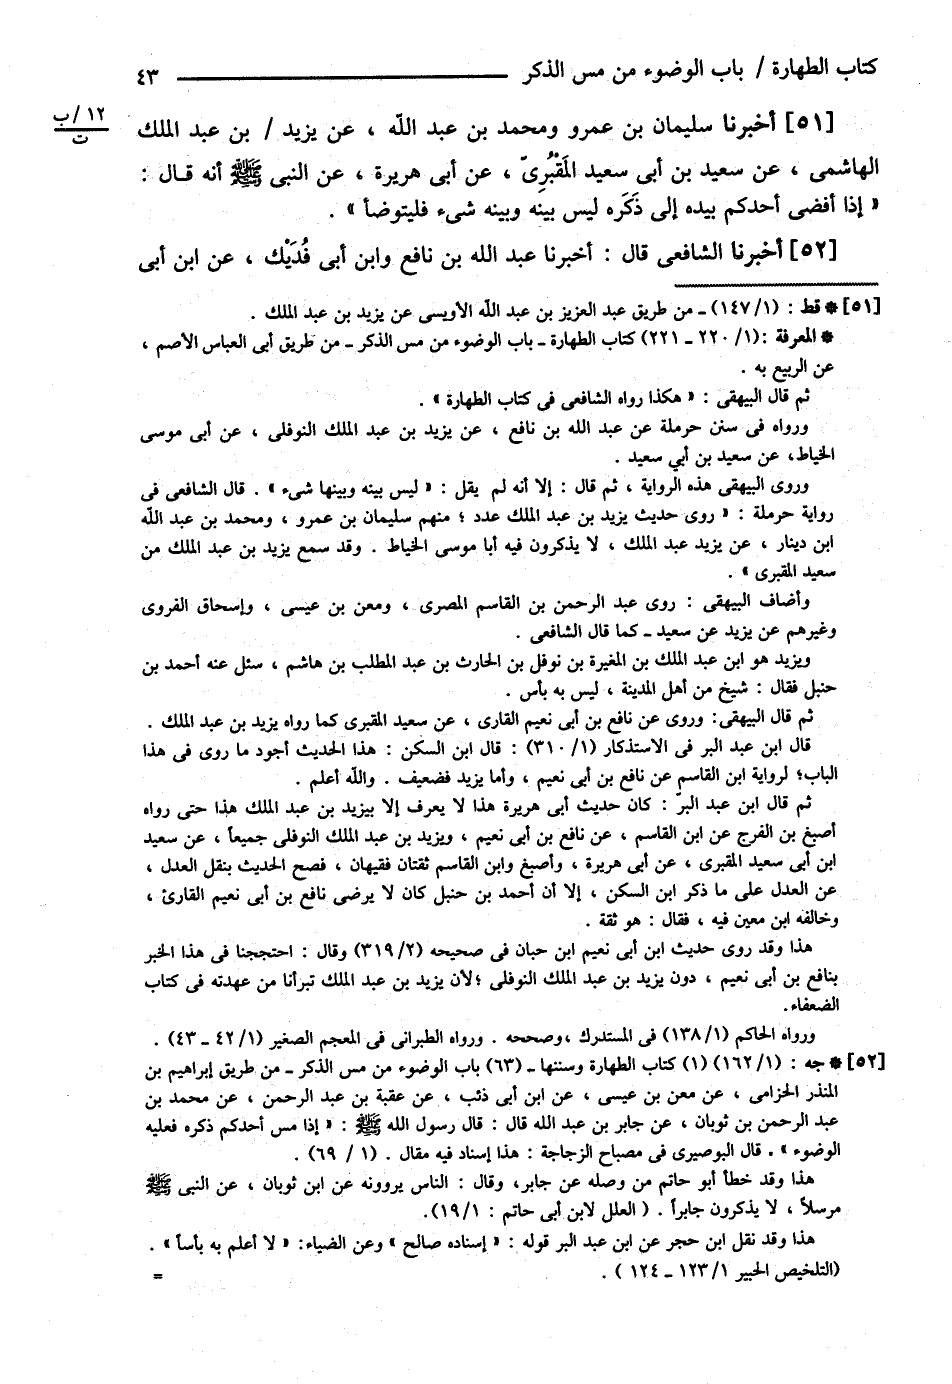 كتاب الطهارة / باب الوضوء من مس الذكر ــــــــ ٤٣
١٢ /ب
ت
[٥١] أخبرنا سليمان بن عمرو ومحمد بن عبد الله ، عن يزيد / بن عبد الملك
الهاشمى ، عن سعيد بن أبى سعيد المَقْبُرِىّ ، عن أبى هريرة ، عن النبى ﷺ أنه قـال :
« إذا أفضى أحدكم بيده إلى ذَكَره ليس بينه وبينه شىء فليتوضأ » .
[٥٢] أخبرنا الشافعى قال : أخبرنا عبد الله بن نافع وابن أبى فُدَيْك ، عن ابن أبى
[٥١] * قط : (١/ ١٤٧) ـ من طريق عبد العزيز بن عبد الله الأويسى عن يزيد بن عبد الملك .
* المعرفة :(١/ ٢٢٠ ـ ٢٢١) كتاب الطهارة ـ باب الوضوء من مس الذكر ـ من طريق أبى العباس الأصم ،
عن الربيع به .
ثم قال البيهقى : « هكذا رواه الشافعى فى كتاب الطهارة » .
ورواه فى سنن حرملة عن عبد الله بن نافع ، عن يزيد بن عبد الملك النوفلى ، عن أبى موسى
الخياط، عن سعيد بن أبي سعيد .
وروى البيهقى هذه الرواية ، ثم قال : إلا أنه لم يقل : « ليس بينه وبينها شىء » . قال الشافعى فى
رواية حرملة : « روى حديث يزيد بن عبد الملك عدد ؛ منهم سليمان بن عمرو ، ومحمد بن عبد الله
ابن دينار ، عن يزيد عبد الملك ، لا يذكرون فيه أبا موسى الخياط . وقد سمع يزيد بن عبد الملك من
سعيد المقبرى » .
وأضاف البيهقى : روى عبد الرحمن بن القاسم المصرى ، ومعن بن عيسى ، وإسحاق الفروى
وغيرهم عن يزيد عن سعيد ـ كما قال الشافعى .
ويزيد هو ابن عبد الملك بن المغيرة بن نوفل بن الحارث بن عبد المطلب بن هاشم ، سئل عنه أحمد بن
حنبل فقال : شيخ من أهل المدينة ، ليس به بأس .
ثم قال البيهقى: وروى عن نافع بن أبى نعيم القارى ، عن سعيد المقبرى كما رواه يزيد بن عبد الملك .
قال ابن عبد البر فى الاستذكار (١/ ٣١٠) : قال ابن السكن : هذا الحديث أجود ما روى فى هذا
الباب؛ لرواية ابن القاسم عن نافع بن أبى نعيم ، وأما يزيد فضعيف . والله أعلم .
ثم قال ابن عبد البرّ : كان حديث أبى هريرة هذا لا يعرف إلا بيزيد بن عبد الملك هذا حتى رواه
أصبغ بن الفرج عن ابن القاسم ، عن نافع بن أبى نعيم ، ويزيد بن عبد الملك النوفلى جميعاً ، عن سعيد
ابن أبى سعيد المقبرى ، عن أبى هريرة ، وأصبغ وابن القاسم ثقتان فقيهان ، فصح الحديث بنقل العدل ،
عن العدل على ما ذكر ابن السكن ، إلا أن أحمد بن حنبل كان لا يرضى نافع بن أبى نعيم القارئ ،
وخالفه ابن معين فيه ، فقال : هو ثقة .
هذا وقد روى حديث ابن أبى نعيم ابن حبان فى صحيحه (٢/ ٣١٩) وقال : احتججنا فى هذا الخبر
بنافع بن أبى نعيم ، دون يزيد بن عبد الملك النوفلى ؛لأن يزيد بن عبد الملك تبرأنا من عهدته فى كتاب
الضعفاء.
ورواه الحاكم (١/ ١٣٨) فى المستدرك ،وصححه . ورواه الطبرانى فى المعجم الصغير (١/ ٤٢ ـ ٤٣) .
[٥٢] * جه : (١/ ١٦٢) (١) كتاب الطهارة وسننها ـ (٦٣) باب الوضوء من مس الذكر ـ من طريق إبراهيم بن
المنذر الحزامى ، عن معن بن عيسى ، عن ابن أبى ذئب ، عن عقبة بن عبد الرحمن ، عن محمد بن
عبد الرحمن بن ثوبان ، عن جابر بن عبد الله قال : قال رسول الله ﷺ : « إذا مس أحدكم ذكره فعليه
الوضوء » . قال البوصيرى فى مصباح الزجاجة : هذا إسناد فيه مقال . (١ / ٦٩) .
هذا وقد خطأ أبو حاتم من وصله عن جابر، وقال : الناس يروونه عن ابن ثوبان ، عن النبى ﷺ
مرسلاً ، لا يذكرون جابراً . ( العلل لابن أبى حاتم : ١/ ١٩).
هذا وقد نقل ابن حجر عن ابن عبد البر قوله : « إسناده صالح » وعن الضياء: « لا أعلم به بأساً » .
(التلخيص الحبير ١/ ١٢٣ ـ ١٢٤ ) .
=